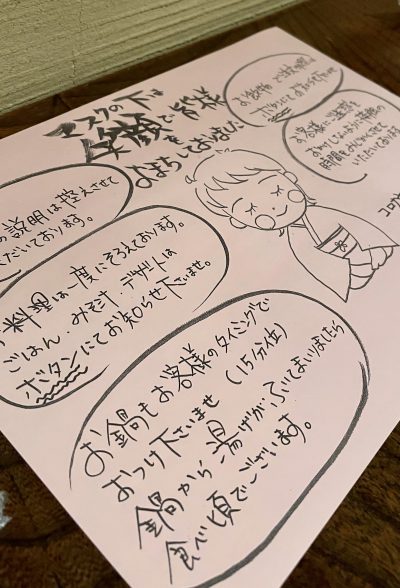 マスクの下は
笑顔で皆様を
おまちしておりました
ボタンにてお知らせ下さいませ
お客様に
時間をみじかくさせて
いただいております
コロナ
の説明は控えさせて
ただいております。
料理は一度にそろえております。
ごはん・みそ汁、デザートは
ボタンにてお知らせ下さいませ。
お鍋もお客様のタイミングで
おつけ下さいませ(15分位)
鍋から湯げがふいてまいりましたら
食べ頃でございます。